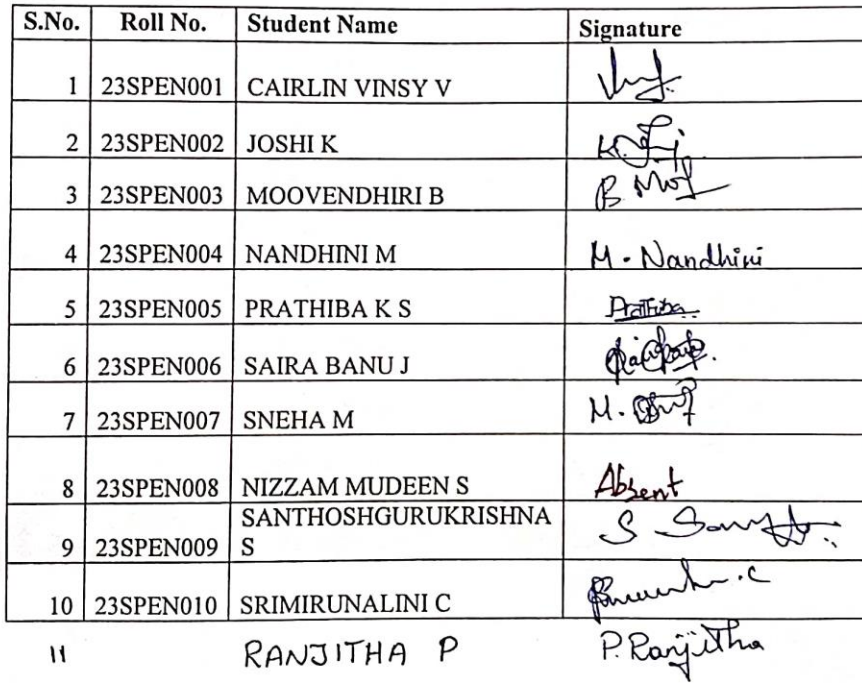 S.No. Roll No. Student Name Signature
1 23SPEN001 CAIRLIN VINSY V
2 23SPEN002 JOSHI K
3 23SPEN003 MOOVENDHIRI B
4 23SPEN004 NANDHINI M M. Nandhini
5 23SPEN005 PRATHIBA K S Prathiba
6 23SPEN006 SAIRA BANU J
7 23SPEN007 SNEHA M
8 23SPEN008 NIZZAM MUDEEN S Absent
SANTHOSHGURUKRISHNA
9 23SPEN009 S
10 23SPEN010 SRIMIRUNALINI C
11 RANJITHA P P. Ranjitha